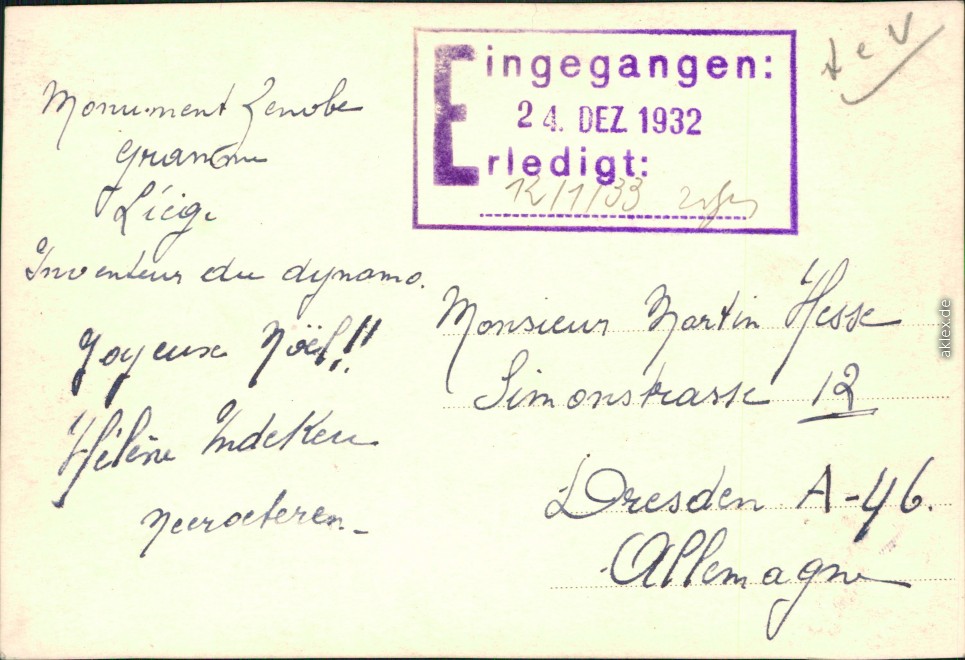 Monument Zenobe
Gramme
Liége
Inventeur du dynamo.
Joyeux Noël!!
Hélène Indekeu
Neeroeteren
Eingegangen:
24. DEZ. 1932
Erledigt:
12/1/33
Monsieur Martin Hesse
Simonstrasse 12
Dresden A-46.
Allemagne
aklex.de